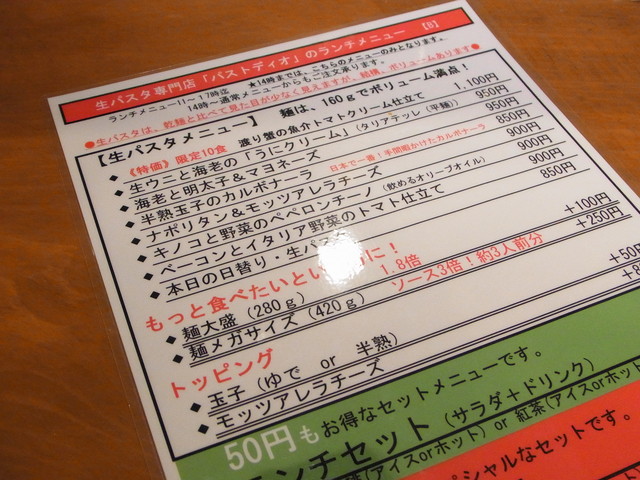 生パスタ専門店「パストディオ」のランチメニュー 【8】
ランチメニュー11～17時迄 ★14時までは、こちらのメニューのみとなります。
14時～通常メニューからもご注文承ります。
●生パスタは、乾麺と比べて見た目が少なく見えますが、結構、ボリュームあります●
【生パスタメニュー】 麺は、160gでボリューム満点！
《特価》限定10食 渡り蟹の魚介トマトクリーム仕立て 1,100円
◆生ウニと海老の「うにクリーム」(タリアテッレ(平麺)) 950円
◆海老と明太子&マヨネーズ 950円
◆半熟玉子のカルボナーラ 日本で一番！手間暇かけたカルボナーラ 850円
◆ナポリタン&モッツアレラチーズ 900円
◆キノコと野菜のペペロンチーノ (飲めるオリーブオイル) 900円
◆ベーコンとイタリア野菜のトマト仕立て 850円
◆本日の日替り・生パス
もっと食べたいとい に！
◆麺大盛(280g) 1.8倍 +100円
◆麺メガサイズ(420g) ソース3倍！約3人前分 +250円
トッピング
◆玉子(ゆで or 半熟) +50円
◆モッツアレラチーズ
50円もお得なセットメニューです。
ンチセット (サラダ+ドリンク)
(アイスorホット) or 紅茶(アイスorホット
ペシャルなセットです。